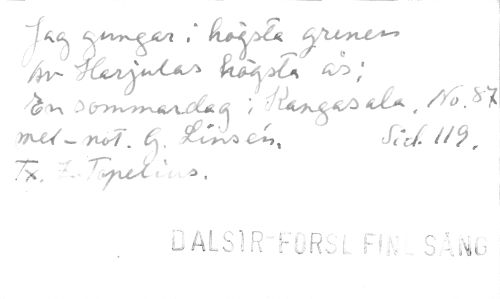 Jag gungar i högsta grenen
av Harjulas högsta ås;
En sommardag i Kangasala. No. 87
mel-not. G. Linsén. Sid. 119.
Tx. Z. Topelius.
DALSTR-FORSL FINL SÅNG